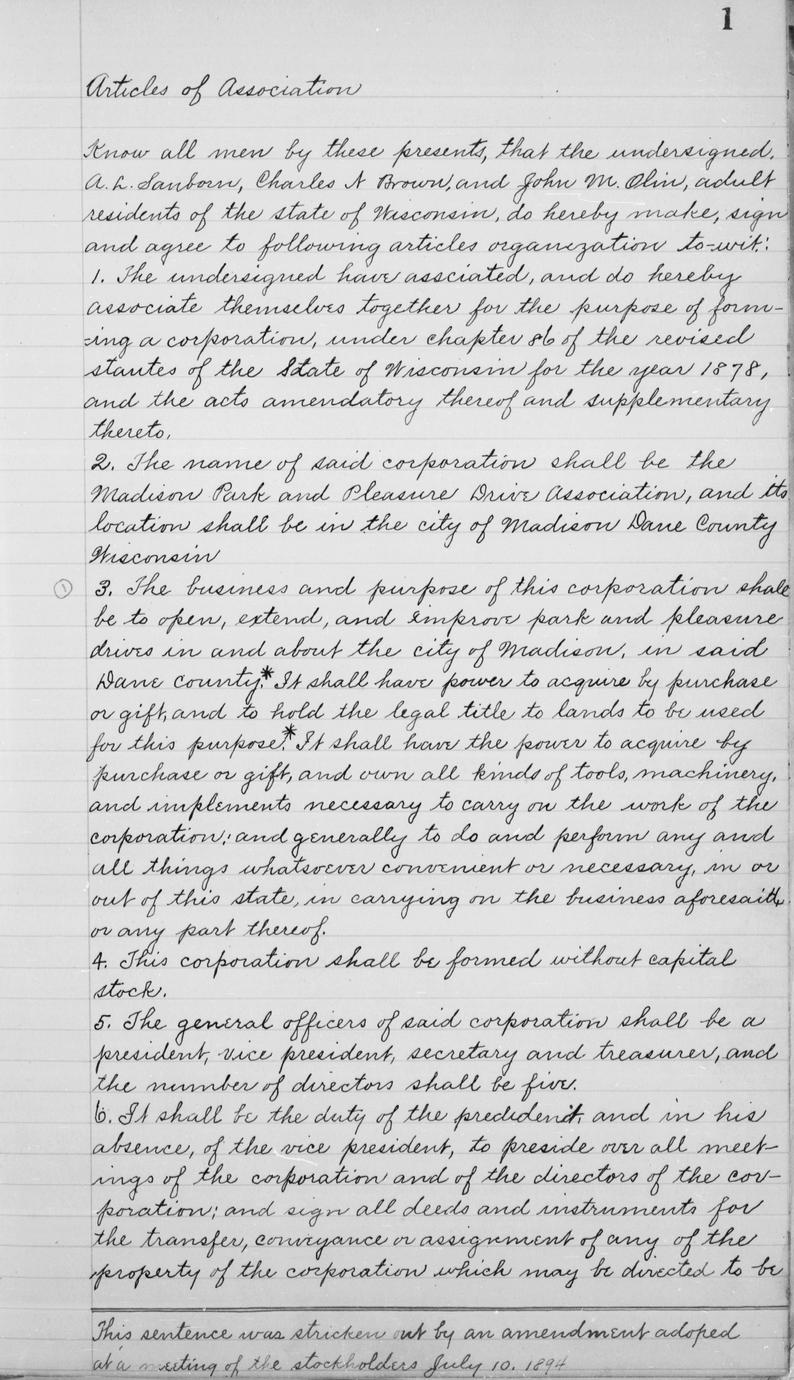 1
Articles of Association
Know all men by these presents, that the undersigned.
A. L. Sanborn, Charles N Brown, and John M. Olin, adult
residents of the state of Wisconsin, do hereby make, sign
and agree to following articles organization to-wit:
1. The undersigned have assciated, and do hereby
associate themselves together for the purpose of form-
-ing a corporation, under chapter 86 of the revised
stautes of the State of Wisconsin for the year 1878,
and the acts amendatory thereof and supplementary
thereto.
2. The name of said corporation shall be the
Madison Park and Pleasure Drive Association, and its
location shall be in the city of Madison Dane County
Wisconsin
① 3. The business and purpose of this corporation shall
be to open, extend, and improve park and pleasure
drives in and about the city of Madison, in said
Dane county.* It shall have power to acquire by purchase
or gift, and to hold the legal title to lands to be used
for this purpose.* It shall have the power to acquire by
purchase or gift, and own all kinds of tools, machinery,
and implements necessary to carry on the work of the
corporation; and generally to do and perform any and
all things whatsoever convenient or necessary, in or
out of this state, in carrying on the business aforesaid,
or any part thereof.
4. This corporation shall be formed without capital
stock.
5. The general officers of said corporation shall be a
president, vice president, secretary and treasurer, and
the number of directors shall be five.
6. It shall be the duty of the predident, and in his
absence, of the vice president, to preside over all meet-
ings of the corporation and of the directors of the cor-
poration; and sign all deeds and instruments for
the transfer, conveyance or assignment of any of the
property of the corporation which may be directed to be
This sentence was stricken out by an amendment adoped
at a meeting of the stockholders July 10. 1894